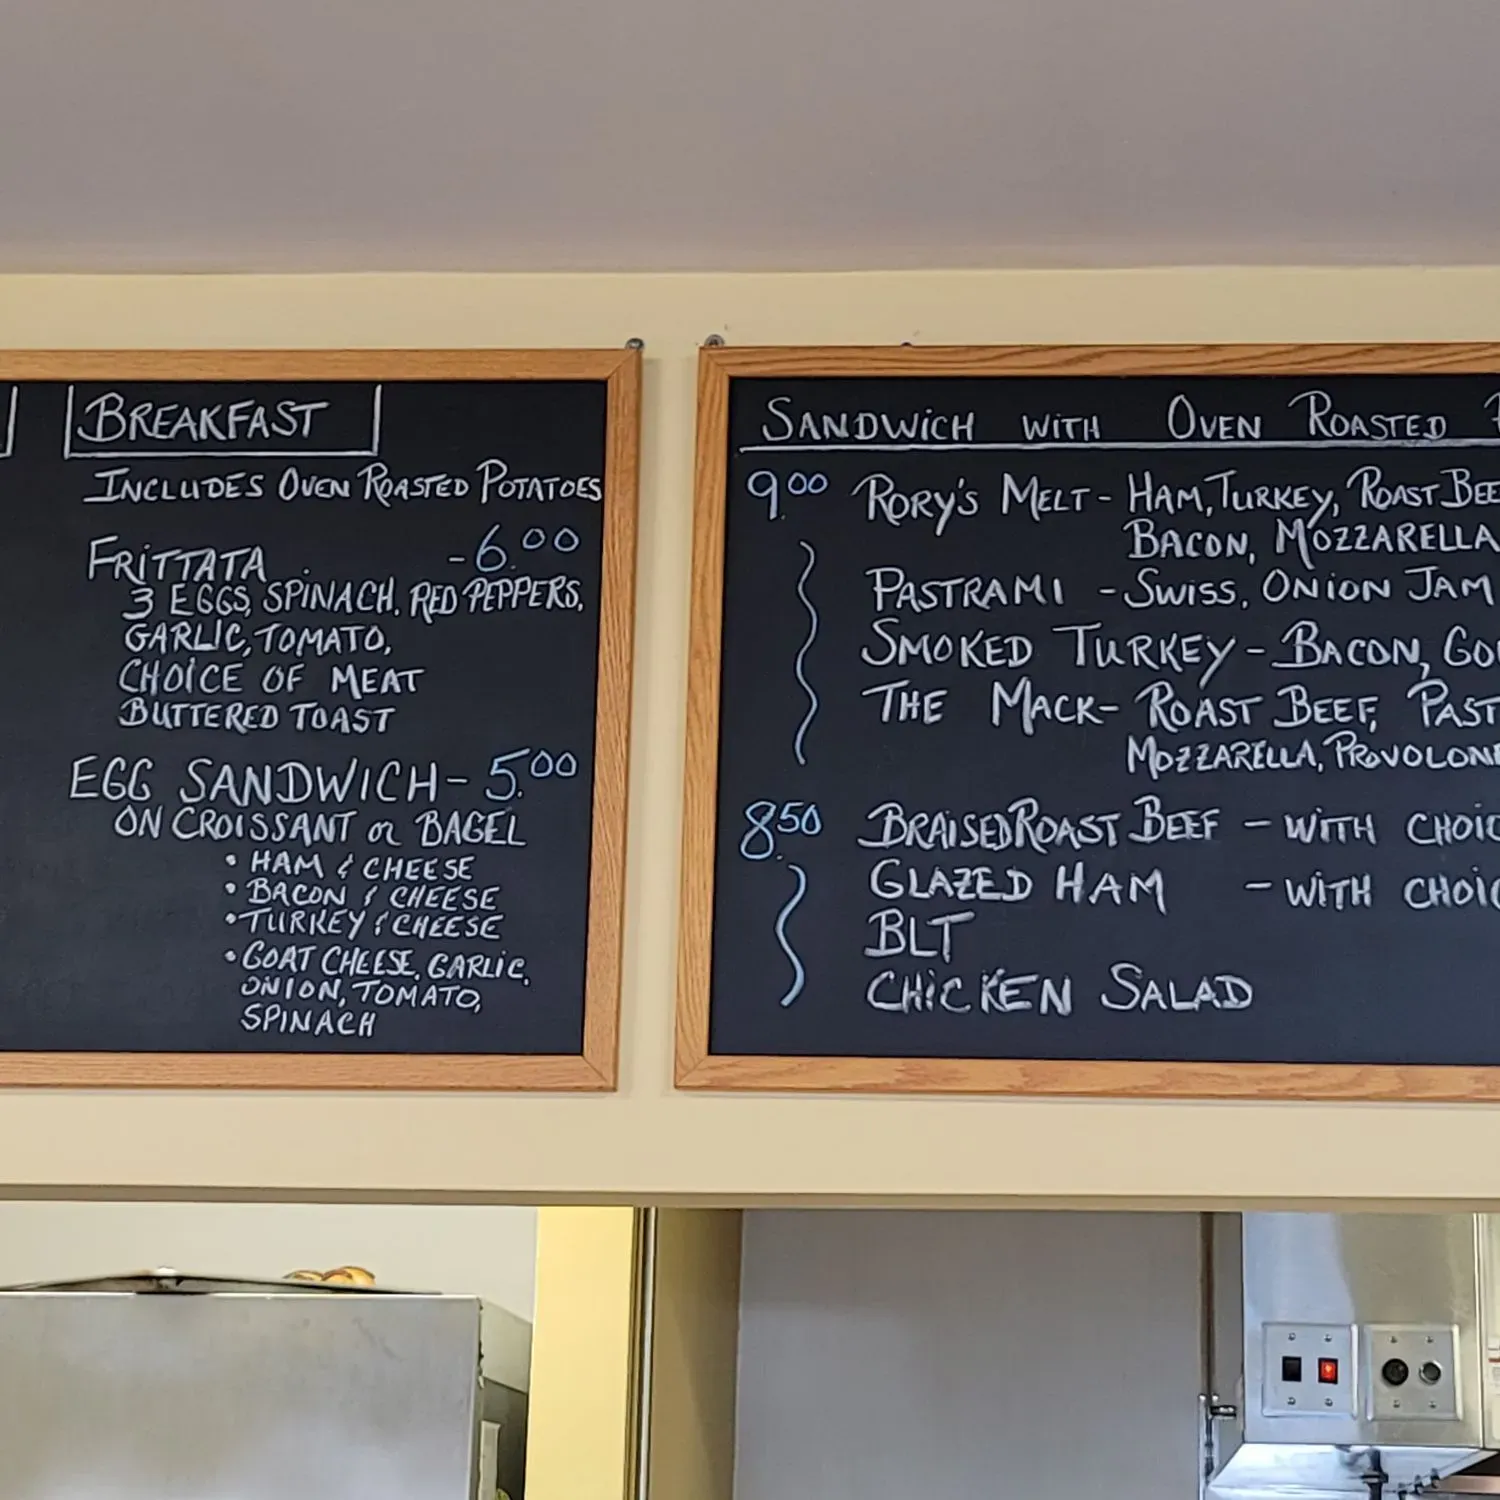 BREAKFAST
INCLUDES OVEN ROASTED POTATOES
FRITTATA - 6.00
3 EGGS, SPINACH, RED PEPPERS,
GARLIC, TOMATO,
CHOICE OF MEAT
BUTTERED TOAST
EGG SANDWICH - 5.00
ON CROISSANT or BAGEL
• HAM & CHEESE
• BACON & CHEESE
• TURKEY & CHEESE
• GOAT CHEESE, GARLIC,
ONION, TOMATO,
SPINACH
SANDWICH WITH OVEN ROASTED
9.00 RORY'S MELT - HAM, TURKEY, ROAST BEE
BACON, MOZZARELLA
PASTRAMI - SWISS, ONION JAM
SMOKED TURKEY - BACON, GO
THE MACK - ROAST BEEF, PAST
MOZZARELLA, PROVOLONE
8.50 BRAISED ROAST BEEF - WITH CHOIC
GLAZED HAM - WITH CHOIC
BLT
CHICKEN SALAD